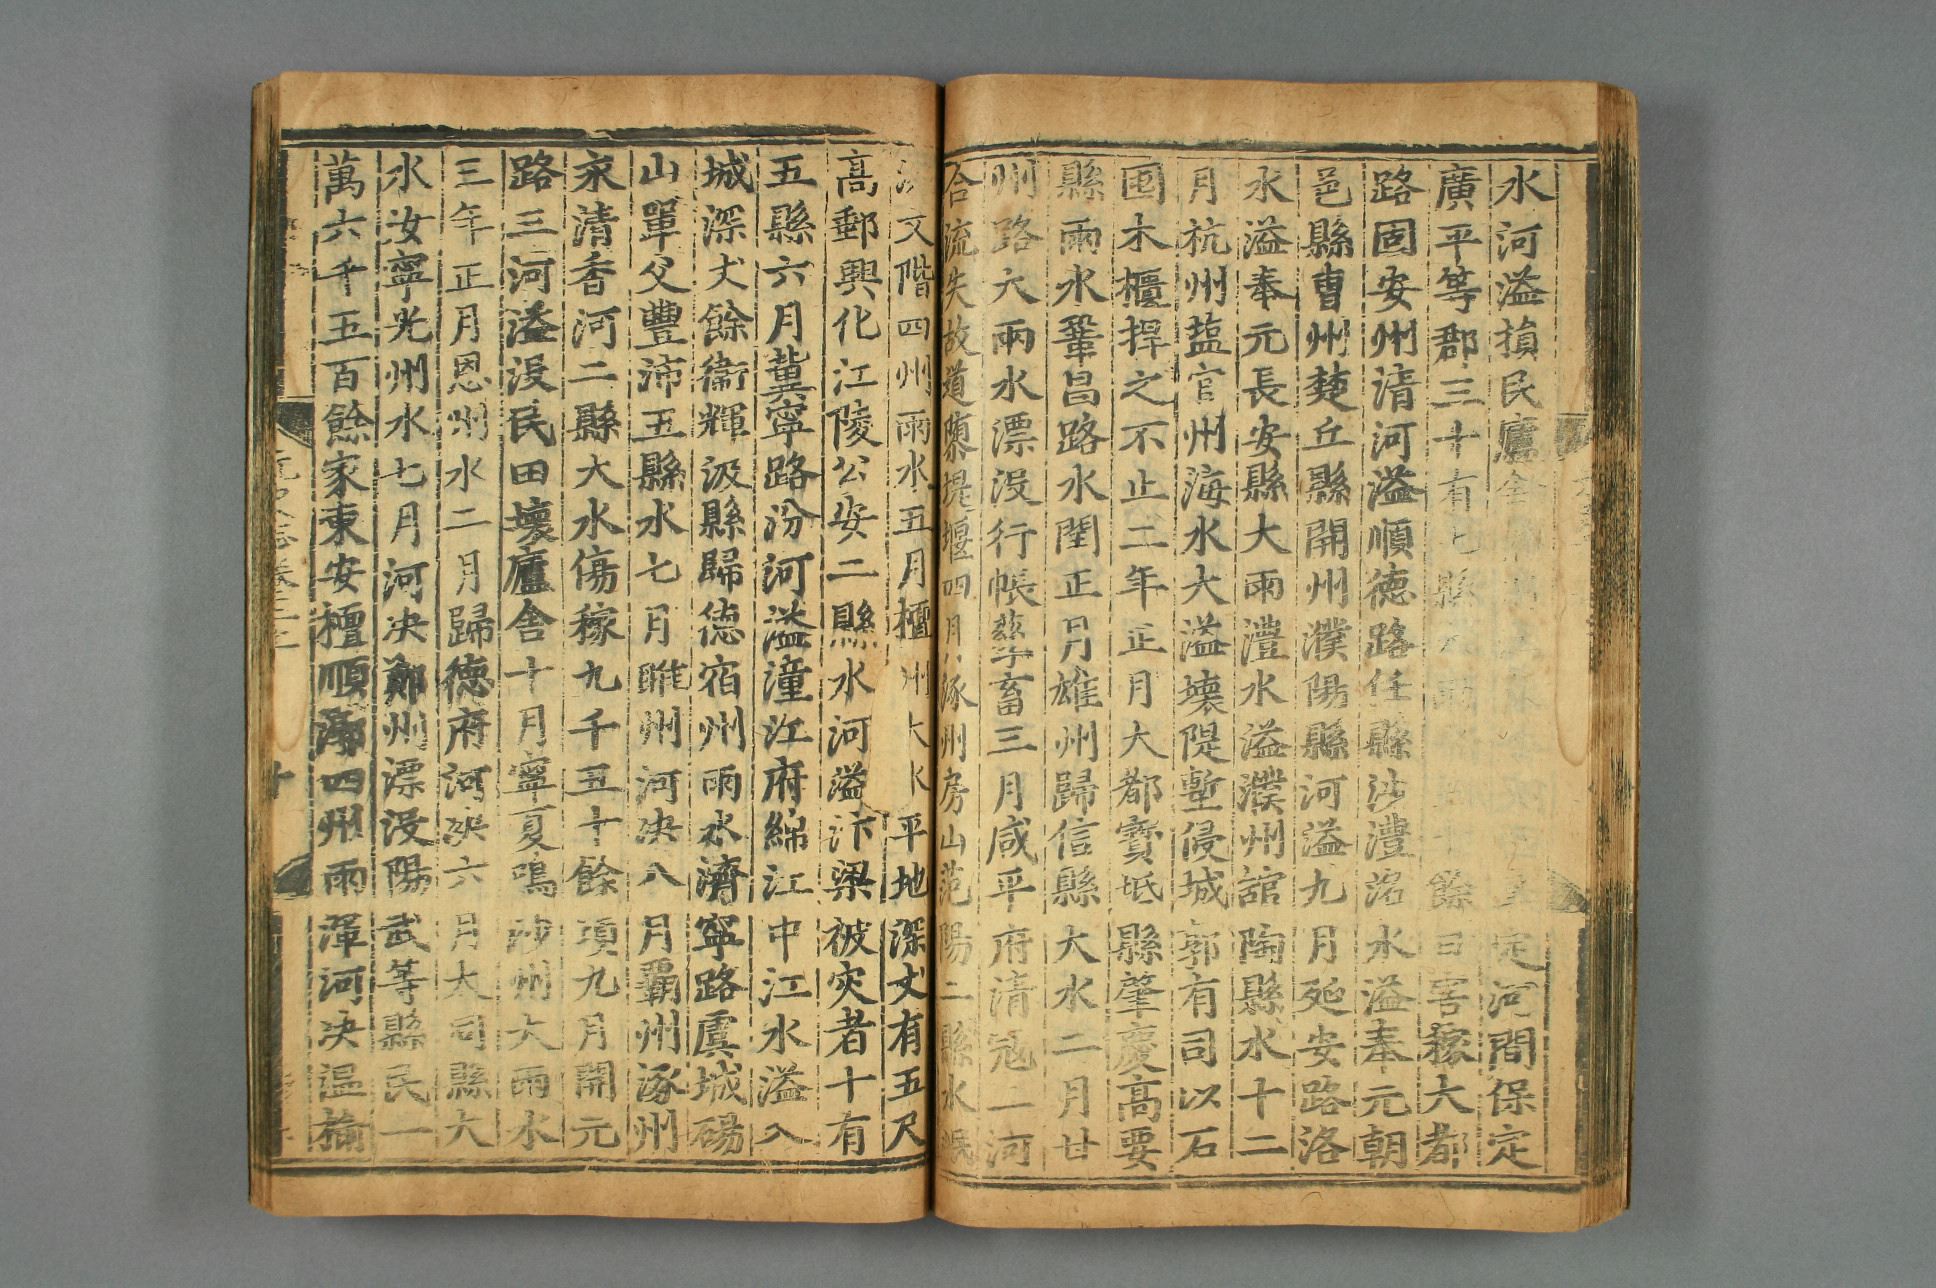 水河溢損民廬舍 定河間保定
廣平等郡三十有七縣 餘日害稼大都
路固安州清河溢順德路任縣沙澧洺水溢奉元朝
邑縣曹州楚丘縣開州濮陽縣河溢九月延安路洛
水溢奉元長安縣大雨澧水溢濮州館陶縣水十二
月杭州塩官州海水大溢壞隄塹侵城郭有司以石
囤木櫃捍之不止二年正月大都寳坻縣肇慶高要
縣雨水鞏昌路水閏正月雄州歸信縣大水二月甘
州路大雨水漂沒行帳孳畜三月咸平府清冦二河
合流失故道隳堤堰四月涿州房山范陽二縣水岷
洮文階四州雨水五月檀州大水平地深丈有五尺
高郵興化江陵公安二縣水河溢汴梁被灾者十有
五縣六月冀寧路汾河溢潼江府綿江中江水溢入
城深丈餘衞輝汲縣歸德宿州雨水濟寧路虞城碭
山單父豐沛五縣水七月睢州河决八月霸州涿州
永清香河二縣大水傷稼九千五十餘頃九月開元
路三河溢沒民田壞廬舍十月寧夏鳴沙州大雨水
三年正月恩州水二月歸德府河决六月大同縣大
水汝寧光州水七月河决鄭州漂沒陽武等縣民一
萬六千五百餘家東安檀順漷四州雨渾河决温榆
元史志卷三上 十